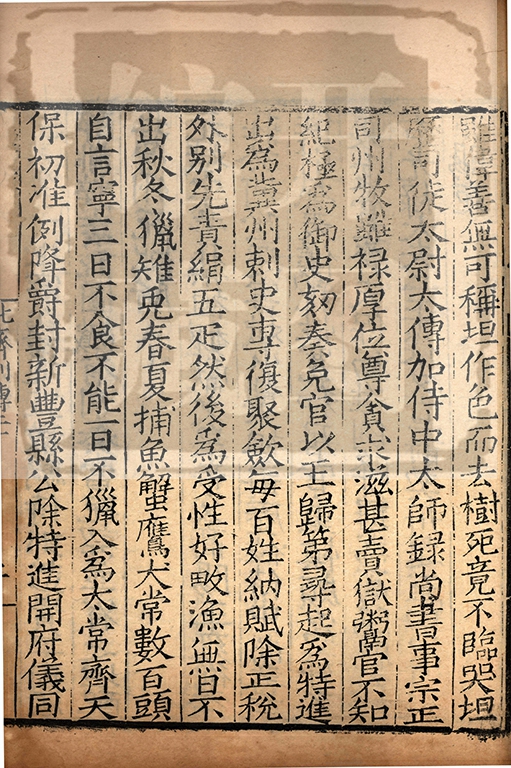 雖僔善無可稱坦作色而去樹死竟不臨哭坦
歷司徒太尉太傅加侍中太師録尚書事宗正
司州牧雖禄厚位尊貪求滋甚賣獄鬻官不知
紀極為御史劾奏免官以王歸第尋起為特進
出為冀州刺史專復聚斂每百姓納賦除正稅
外别先責絹五疋然後為受性好畋漁無日不
出秋冬獵雉兎春夏捕魚蟹鷹犬常數百頭
自言寧三日不食不能一日不獵入為太常齊天
保初准例降爵封新豐縣公除特進開府儀同
北齊列傳二十